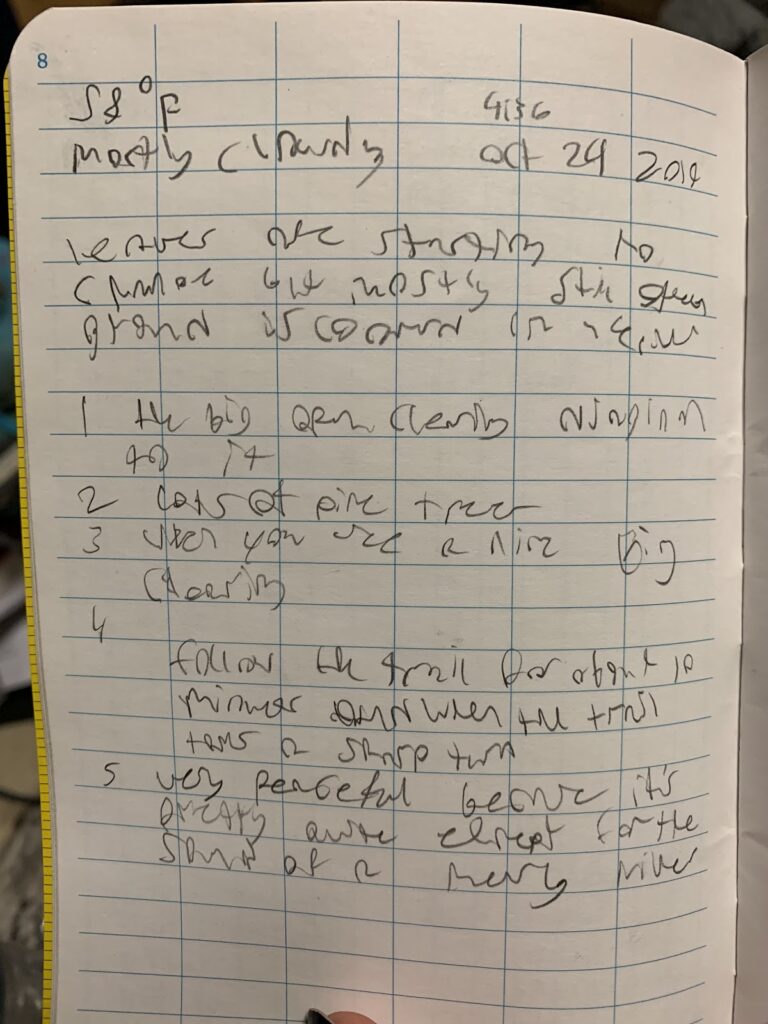 8
58°F 4:36
mostly cloudy Oct 24 2019
leaves are starting to
change but mostly still green
ground is covered in
1 the big open clearing
to it
2 Lots of pine trees
3 when you see a nice Big
Clearing
4
follow the trail for about 10
minutes and when the trail
takes a sharp turn
5 very peaceful because it's
pretty quite except for the
sound of a nearby river